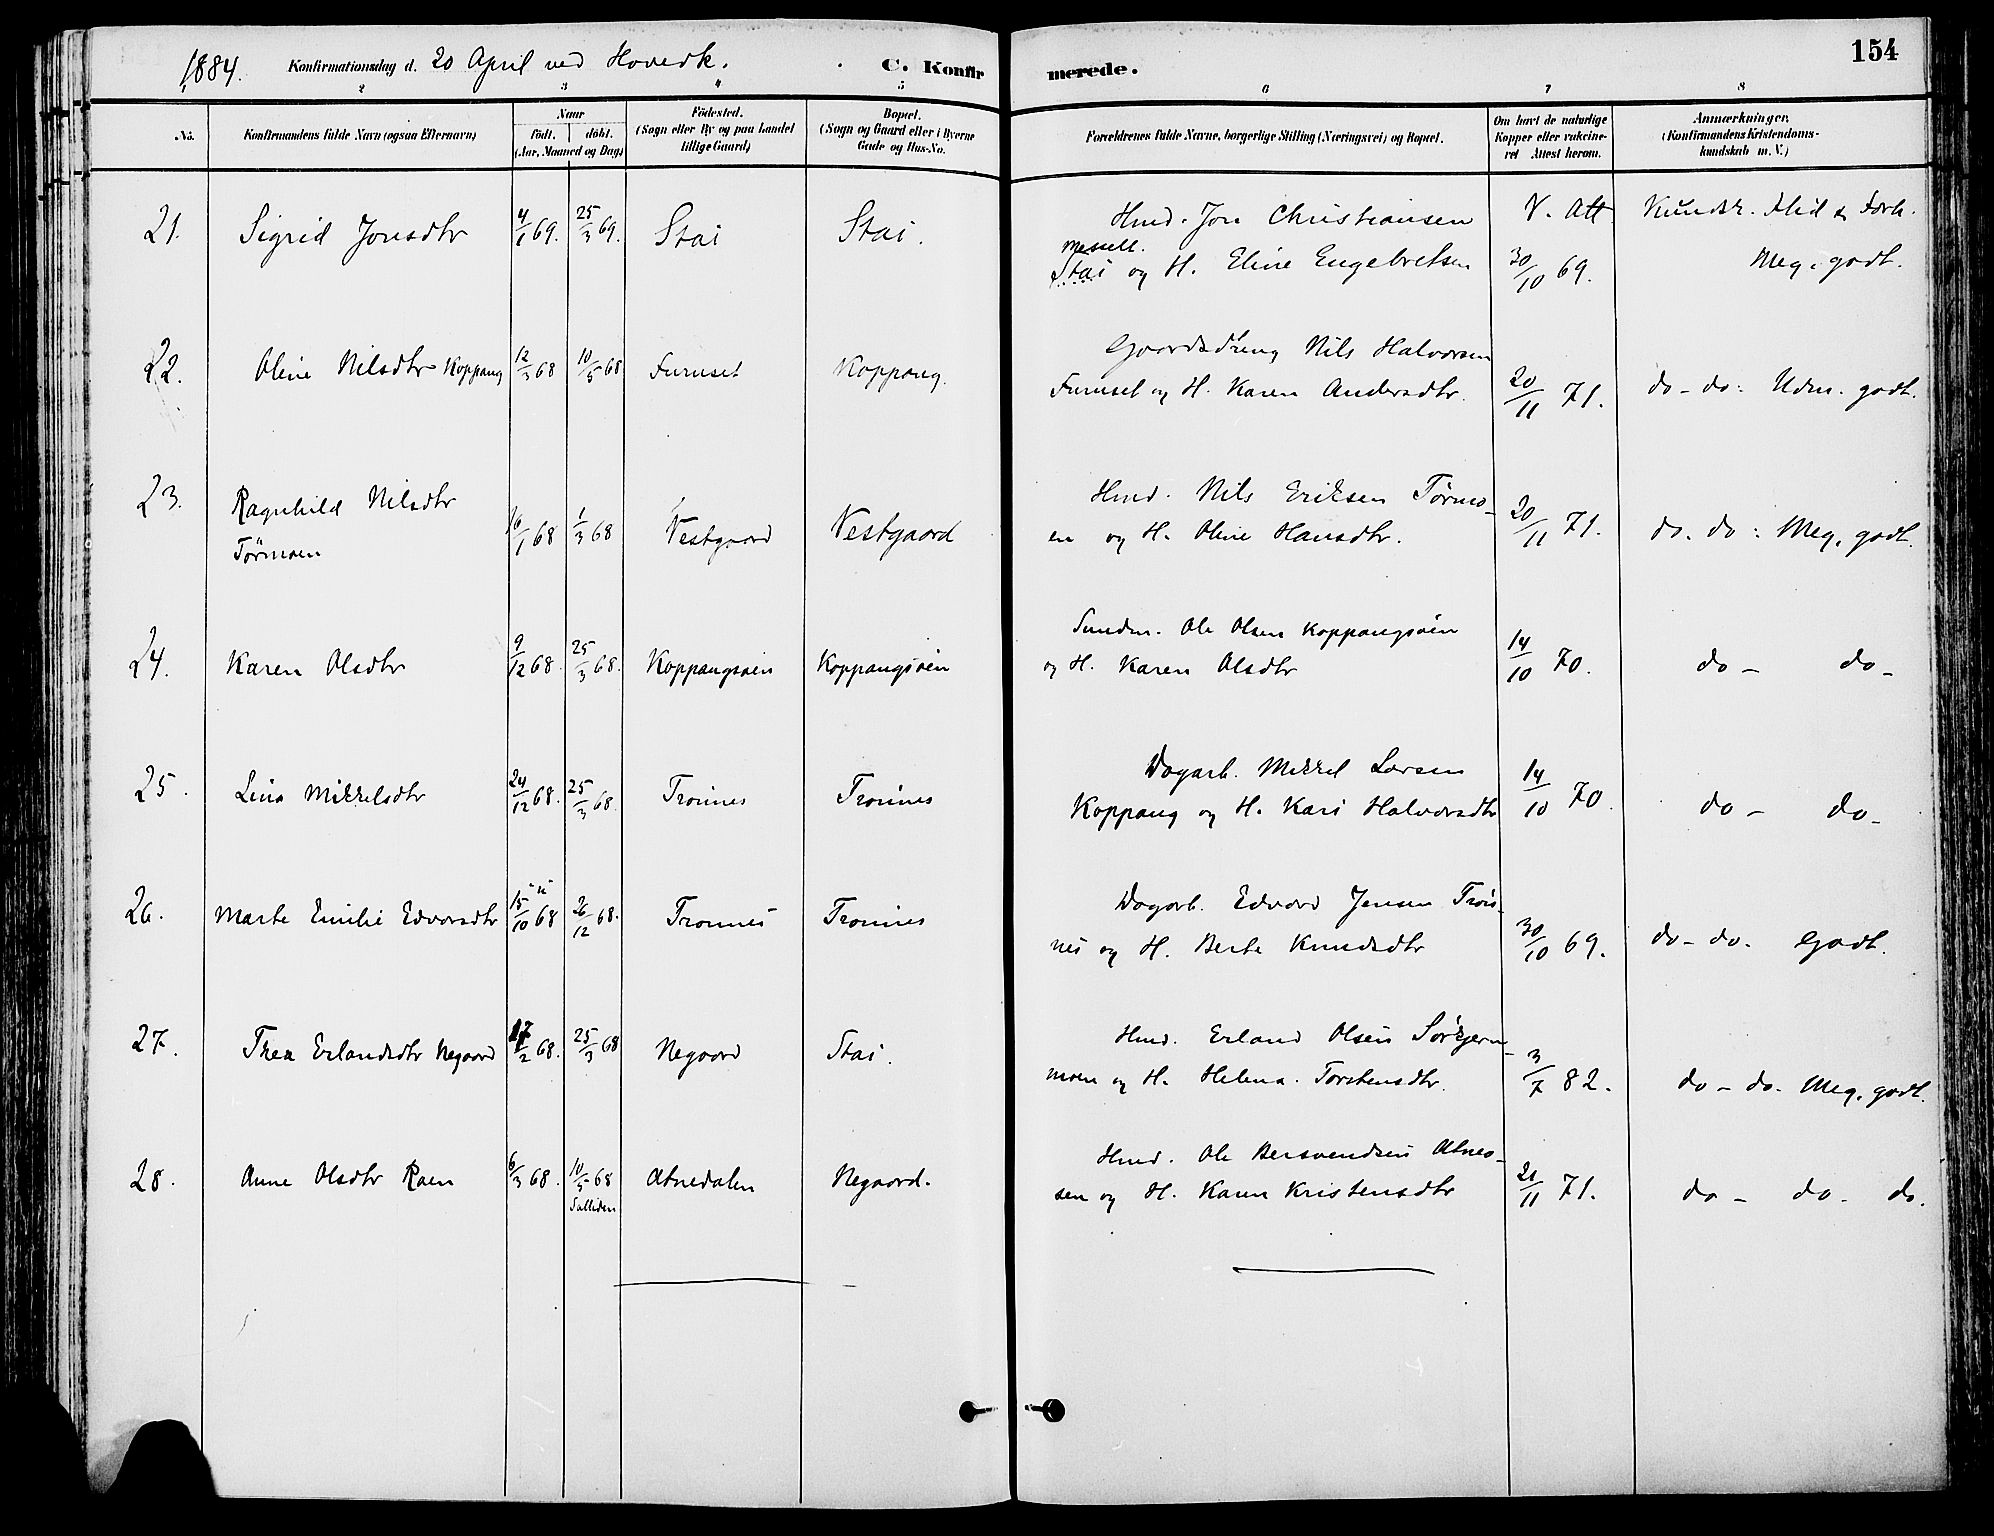 154
1884. Konfirmationsdag d. 20 April ved Hovedk. C. Konfirmerede.
1 2 3 4 5 6 7 8
No. Konfirmandens fulde Navn (ogsaa Efternavn) Naar født. døbt. (Aar, Maaned og Dag) Födested. (Sogn eller By og paa Landet tillige Gaard) Bopæl. (Sogn og Gaard eller i Byerne Gade og Hus-No.
Forældrenes fulde Navne, borgerlige Stilling (Næringsvei) og Bopæl. Om havt de naturlige Kopper eller vakcineret Attest herom. Anmærkninger. (Konfirmandens Kristendomskundskab m. V.)
21. Sigrid Jonsdtr 4/1 69. 25/3 69. Stai Stai. Hmd. Jon Christiansen V. Att Kundsk. Flid & Forh.
Messelt.
Stai og H. Eline Engebretsen 30/10 69. Meg. godt.
22. Oline Nilsdtr Koppang 12/3 68 10/5 68 Furuset Koppang. Gaardsdreng Nils Halvorsen
Furuset og H. Karen Andersdtr. 20/11 71. do - do: Udm. godt.
23. Ragnhild Nilsdtr
Tørmoen 16/1 68 1/3 68 Vestgaard Vestgaard Hmd. Nils Eriksen Tørmo-
en og H. Oline Hansdtr. 20/11 71. do. do: Meg. godt.
24. Karen Olsdtr 9/12 68. 25/3 68. Koppangsøien Koppangsøien Ole Olsen Koppangsøien
og H. Karen Olsdtr 14/10 70. do - do -
25. Lina Mikkelsdtr 24/12 68. 25/3 68. Tronnes Tronnes Dagarb. Mikkel Larsen
Koppang og H. Kari Halvorsdtr 14/10 70. do - do -
26. Marte Emilie Edvarsdtr 15/10 68 26/12 68. Tronnes Tronnes Dagarb. Edvard Jensen Tron-
nes og H. Berte Knudsdtr 30/10 69. do - do. Godt.
27. Thea Erlandsdtr Negaard 17/2 68. 25/3 68 Negaard Stai. Hmd. Erland Olsen Sorkjern-
moen og H. Helena Torstensdtr. 3/7 82. do - do. Meg. godt.
28. Anne Olsdtr Raen 6/3 68. 10/5 68 Atnedalen Negaard. Hmd. Ole Bersvendsen Atneo-
Solliden
sen og H. Karen Kristensdtr 21/11 71. do - do - do.